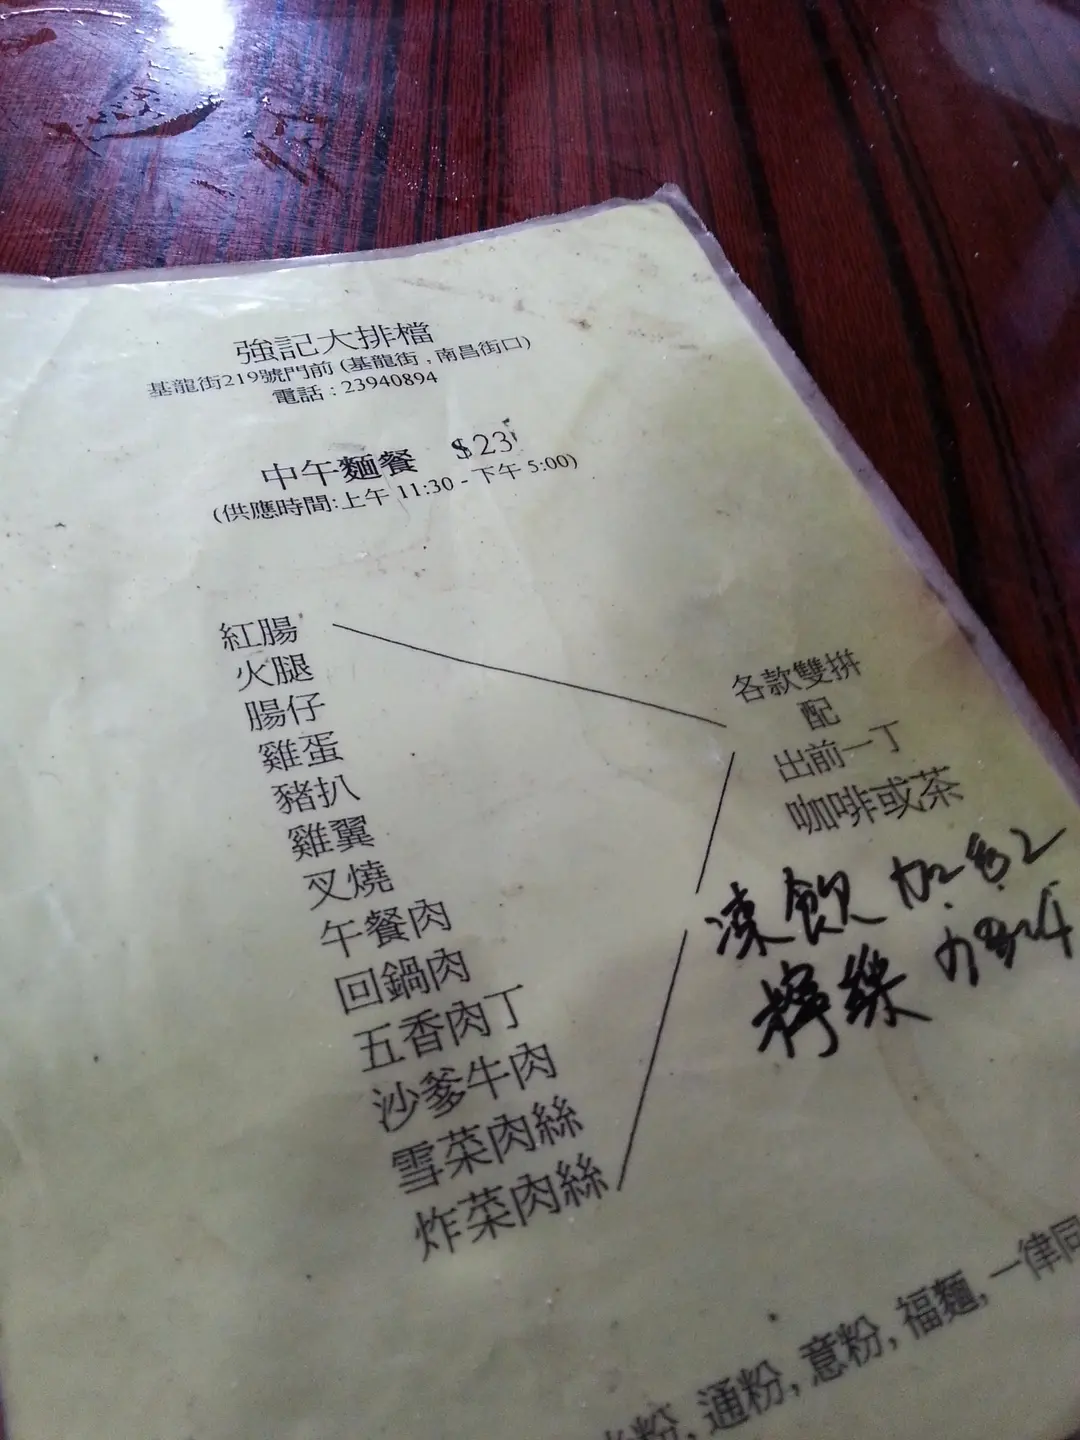 強記大排檔
基龍街219號門前 (基龍街 , 南昌街口)
電話 : 23940894
中午麵餐 $23
(供應時間:上午 11:30 - 下午 5:00)
紅腸
火腿
腸仔
雞蛋
豬扒
雞翼
叉燒
午餐肉
回鍋肉
五香肉丁
沙爹牛肉
雪菜肉絲
炸菜肉絲
各款雙拼
配
出前一丁
咖啡或茶
凍飲 加 2
檸樂 4
粉, 通粉, 意粉, 福麵, 一律同